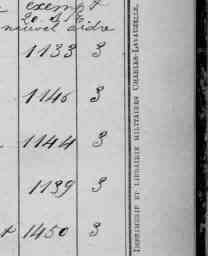 exempt
nouvel
1133 3
1146 3
1144 3
1139 3
1450 3
IMPRIMERIE ET LIBRAIRIE MILITAIRES CHARLES-LAVAUZELLE.